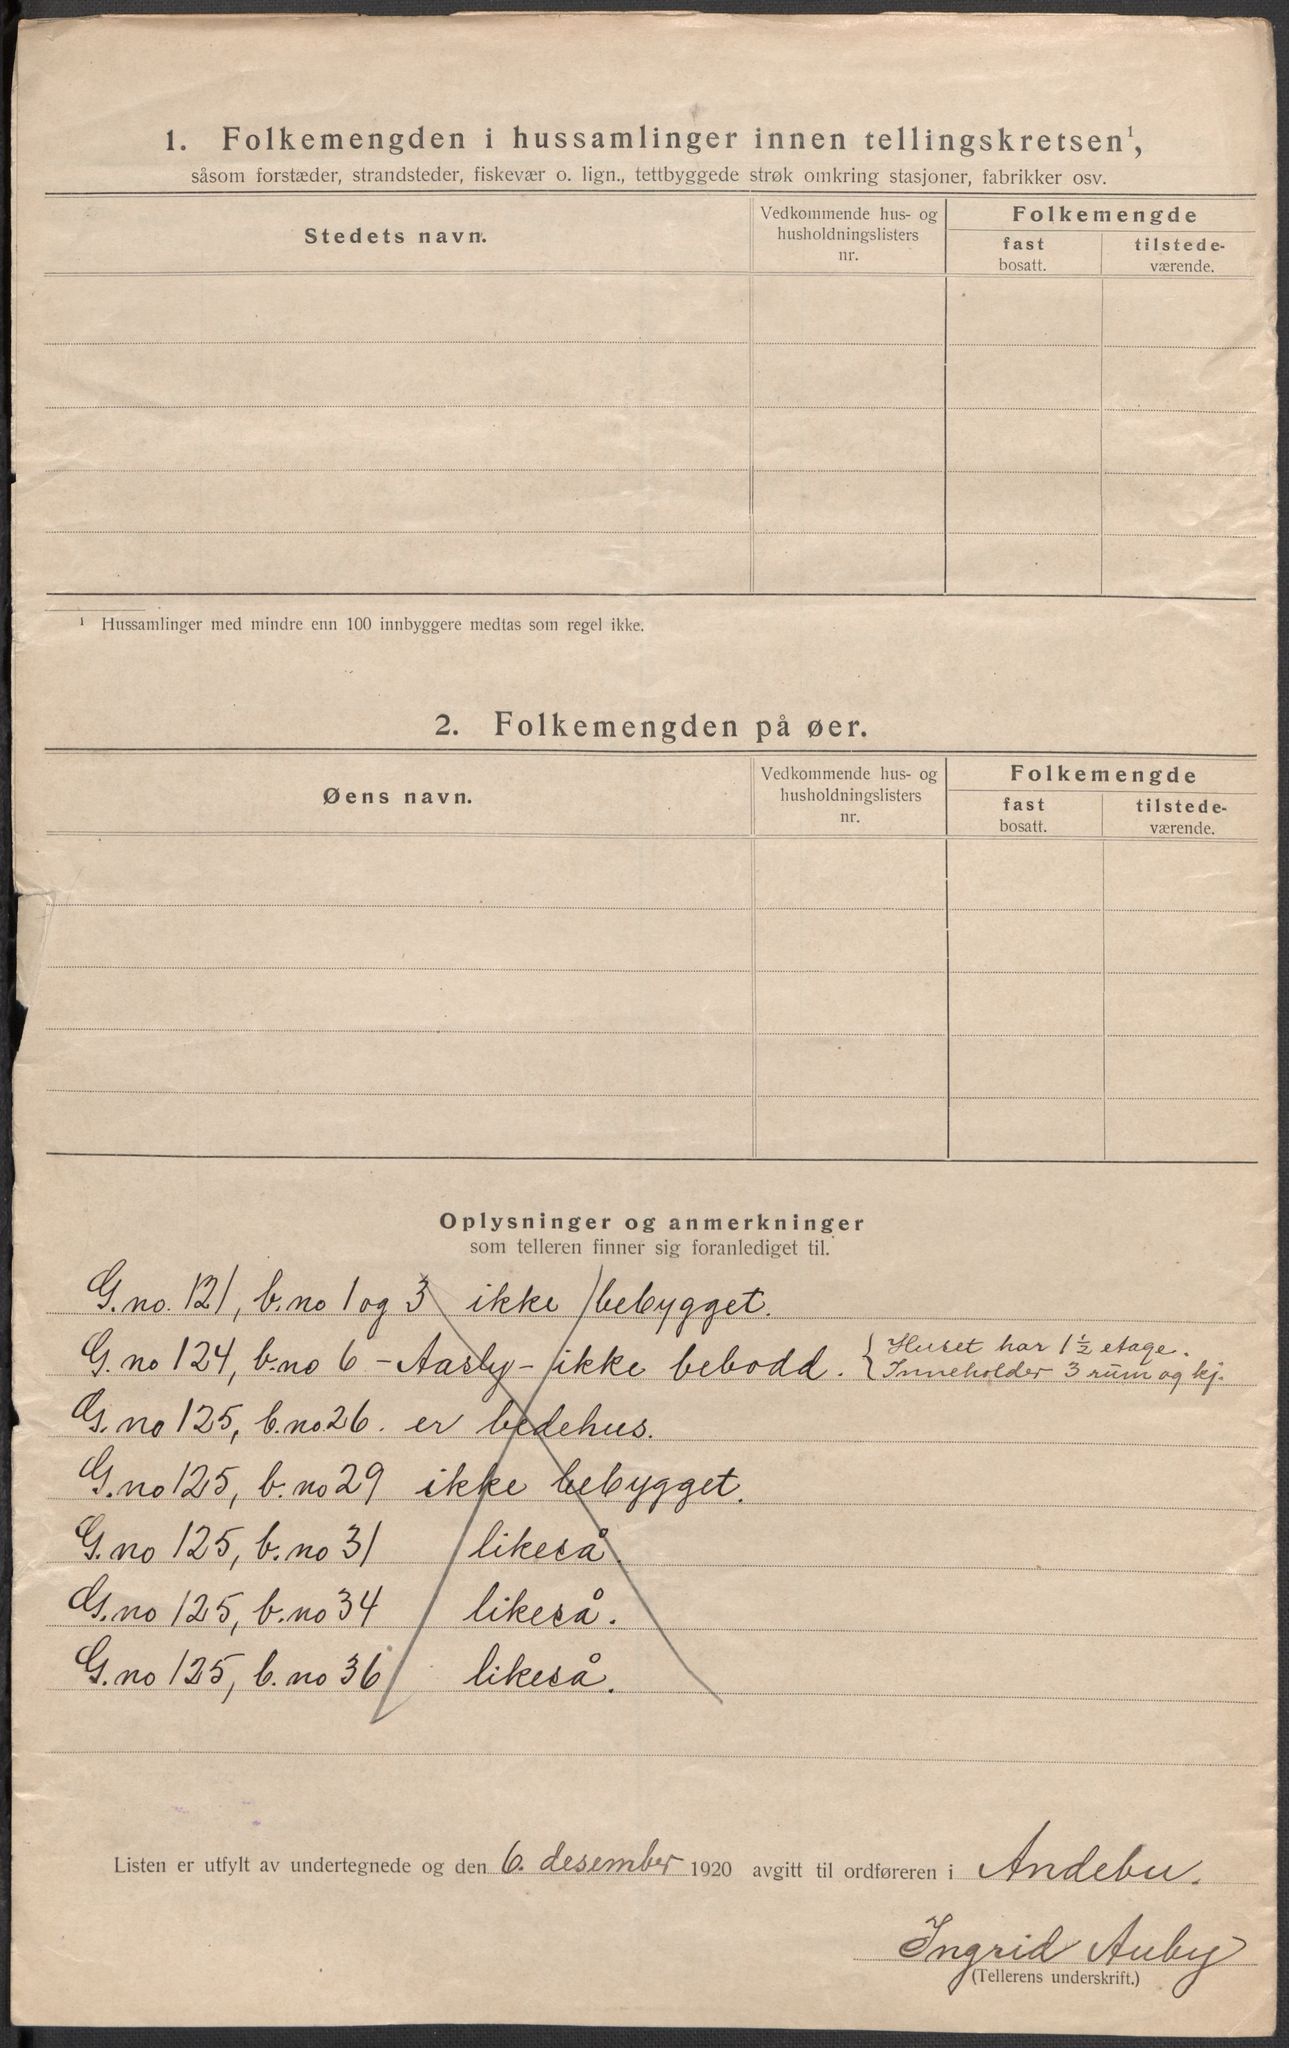 1. Folkemengden i hussamlinger innen tellingskretsen¹,
såsom forstæder, strandsteder, fiskevær o. lign., tettbyggede strøk omkring stasjoner, fabrikker osv.
Stedets navn.
Vedkommende hus- og
husholdningslisters
nr.
Folkemengde
fast
bosatt.
tilstede-
værende.
¹ Hussamlinger med mindre enn 100 innbyggere medtas som regel ikke.
2. Folkemengden på øer.
Øens navn.
Vedkommende hus- og
husholdningslisters
nr.
Folkemengde
fast
bosatt.
tilstede-
værende.
Oplysninger og anmerkninger
som telleren finner sig foranlediget til.
G. no. 121, b. no 1 og 3 ikke bebygget.
G. no 124, b. no 6 - Aasly - ikke bebodd. { Huset har 1½ etage.
Inneholder 3 rum og kj.
G. no 125, b. no 26. er bedehus.
G. no 125, b. no 29 ikke bebygget.
G. no 125, b. no 31 likeså.
G. no 125, b. no 34 likeså.
G. no 125, b. no 36 likeså.
Listen er utfylt av undertegnede og den 6. desember 1920 avgitt til ordføreren i Andebu.
Ingrid Auby
(Tellerens underskrift.)